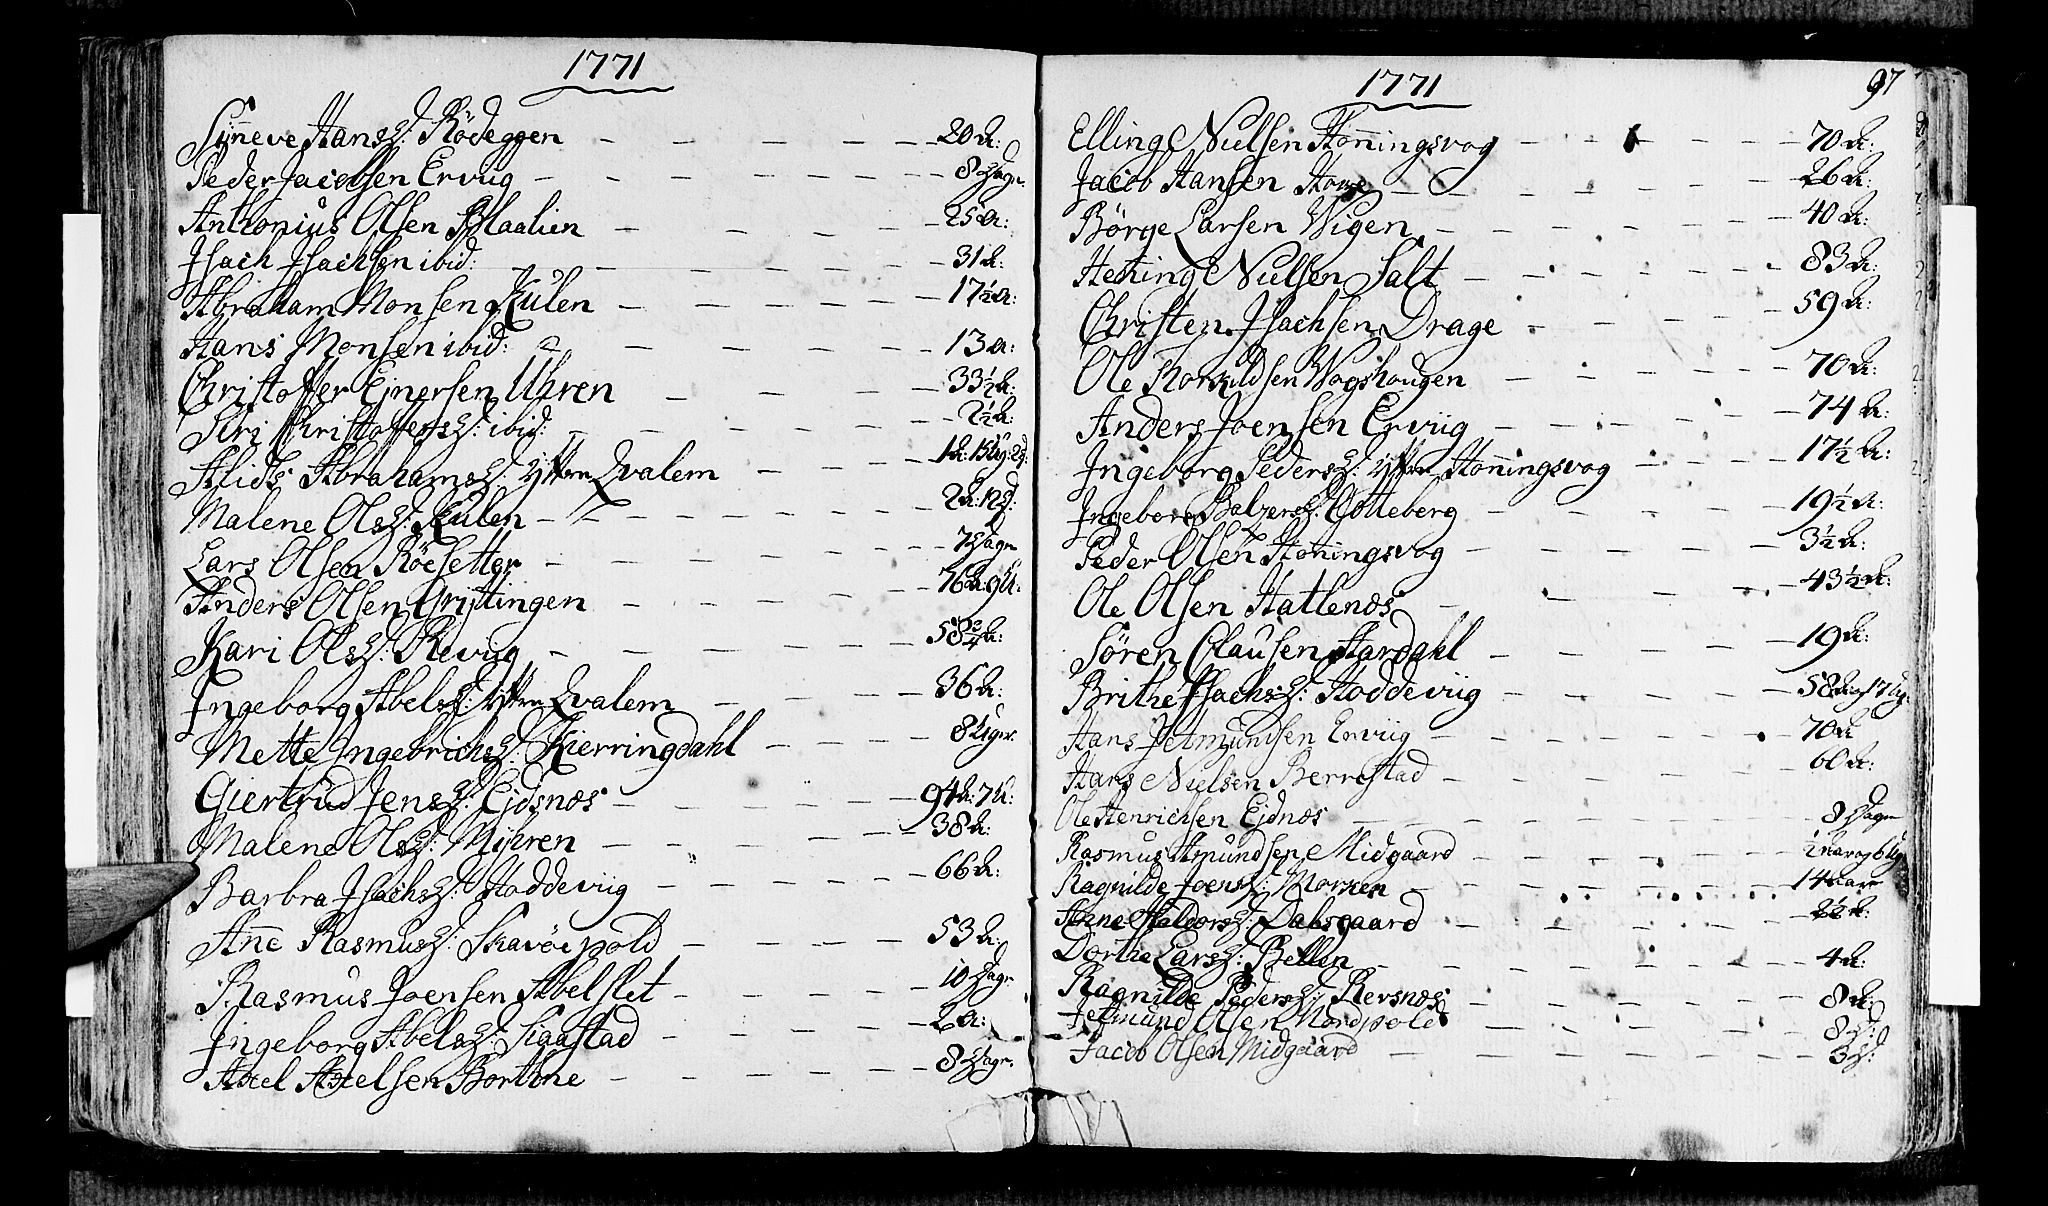 1771
Synneve Hansd: Rödeggen – – – – – 20 A:
Peder Jacobsen Erviig – – – – – 8 Dage.
Anthonius Olsen Blaalien – – – – 25 A:
Isach Isachsen ibid: – – – – – 31 A:
Abraham Monsen Kulen – – – – – 17½ A:
Hans Monsen ibid: – – – – – 13 A:
Christoffer Ejnersen Uhren – – – – 33½ A:
Siri Christoffersd: ibid: – – – – – 2½ A:
Alids Abrahamsd: Yttre Qvalem – – – 1 A: 15 Ug: 2 D:
Malene Olsd: Kulen – – – – – 2 A: 12 D:
Lars Olsen Röesetter – – – – – 7 Dage
Anders Olsen Gryttingen – – – – – 76 A: 9 U:
Kari Olsd: Reviig – – – – – 58¾ A:
Ingeborg Abelsd: Yttre Qvalem – – – 36 A:
Mette Ingebrichsd: Kierringdahl – – – 8 Uger.
Giertrud Jensd: Ejdsnæs – – – – 94 A: 7 U:
Malene Olsd: Myhren – – – – 38 A:
Barbra Isachsd: Hoddeviig – – – – 66 A:
Anne Rasmusd: Skavöepold – – – – 53 A:
Rasmus Joensen Abelslet – – – – 10 Dage
Ingeborg Abelsd: Skaastad – – – – 2 A:
Axel Axelsen Borthne – – – – 8 Dage.
1771
97
Elling Nielsen Honningsvog – – – – 70 A:
Jacob Hansen – – – – 26 A:
Börge Larsen Wigen – – – – 40 A:
Henning Nielsen Salt – – – – 83 A:
Christen Isachsen Drage – – – – 59 A:
Ole Thorkildsen Wogshougen – – – – 70 A:
Anders Joensen Erviig – – – – 74 A:
Ingeborg Pedersd: Yttre Honningsvog – – – 17½ A:
Ingeborg Balzersd: Gotteberg – – – – 19½ A:
Peder Olsen Honingsvog – – – – 3½ A:
Ole Olsen Hatlenæs – – – – 43½ A:
Sören Clausen Hardahl – – – – 19 A:
Brithe Isachsd: Hoddeviig – – – – 58 A og 17 Ug.
Hans Jetmundsen Erviig – – – – 70 A
Hans Nielsen Berrestad – – – – 60 A:
Ole Henrichsen Ejdnæs – – – – 8 Dage
Rasmus Amundsen Midgaard – – – – 2 Aar og 6 Ug
Ragnilde Joensd: Morken – – – – 14 Aar
Anne Haldorsd: Dahsgaard – – – – 2½ A:
Dorthe Larsd: Bellen – – – – 4 A:
Ragnilde Pedersd: Revsnæs – – – – 8 A:
Jetmund Olsen Nordpold – – – – 8 D:
Jacob Olsen Midgaard – – – – 3 D: